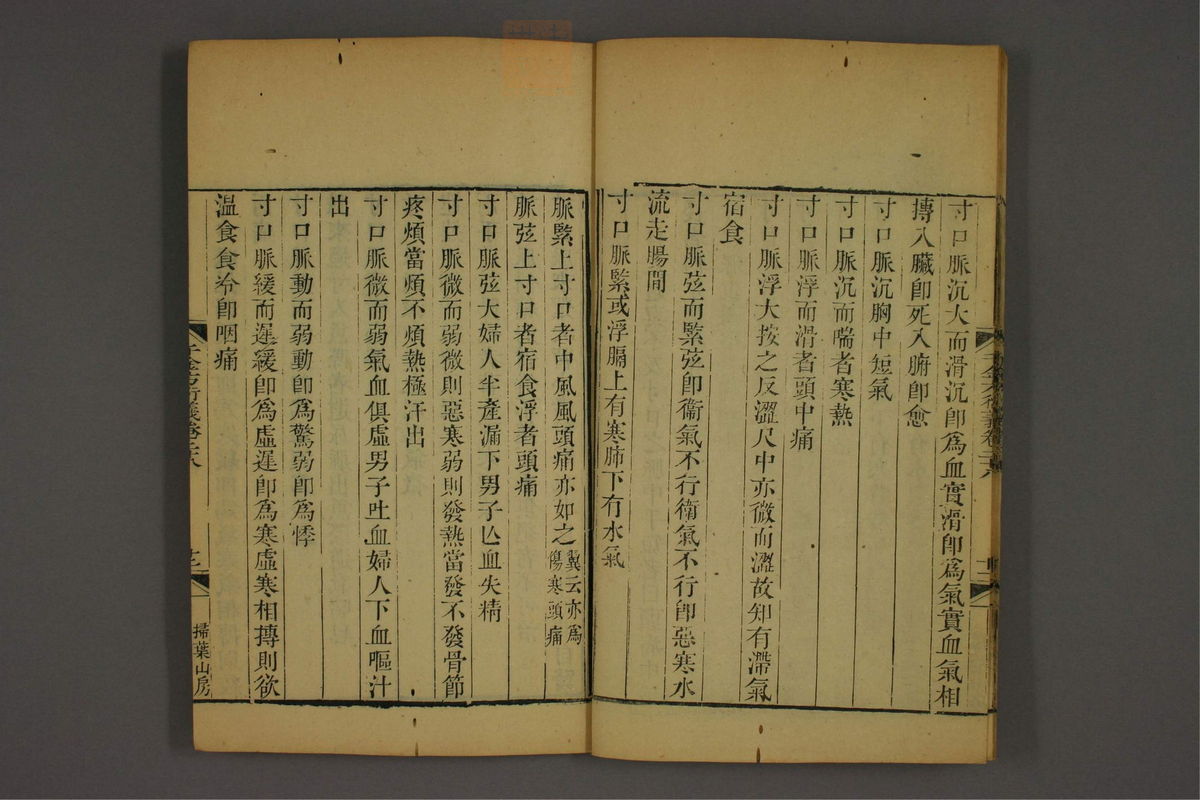 寸口脈沉大而滑沉卽爲血實滑卽爲氣實血氣相
搏入臟卽死入腑卽愈
寸口脈沉胸中短氣
寸口脈沉而喘者寒熱
寸口脈浮而滑者頭中痛
寸口脈浮大按之反澀尺中亦微而澀故知有滯氣
宿食
寸口脈弦而緊弦卽衞氣不行衞氣不行卽惡寒水
流走腸間
寸口脈緊或浮膈上有寒肺下有水氣
脈緊上寸口者中風風頭痛亦如之
翼云亦爲
傷寒頭痛
脈弦上寸口者宿食浮者頭痛
寸口脈弦大婦人半產漏下男子亾血失精
寸口脈微而弱微則惡寒弱則發熱當發不發骨節
疼煩當煩不煩熱極汗出
寸口脈微而弱氣血俱虛男子吐血婦人下血嘔汁
出
寸口脈動而弱動卽爲驚弱卽爲悸
寸口脈緩而遲緩卽爲虛遲卽爲寒虛寒相搏則欲
溫食食冷卽咽痛
千金方衍義卷二十八
掃葉山房